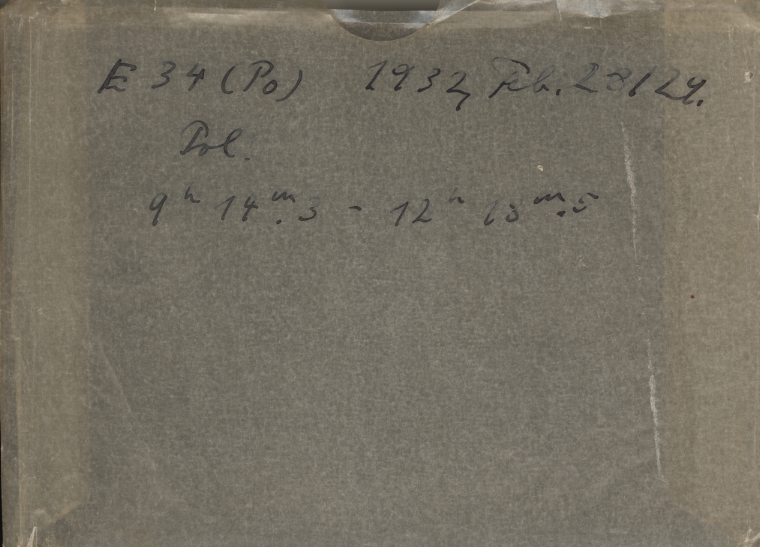 E 34 (Po) 1932, Feb. 28/29.
Pol.
9ʰ 14ᵐ.3 - 12ʰ 15ᵐ.5